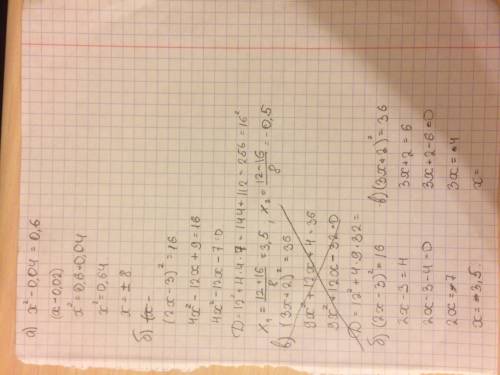 а) x² - 0,04 = 0,6
(x - 0,02)
x² = 0,6 + 0,04
x² = 0,64
x = ± 8
б) (x -
(2x - 3)² = 16
4x² - 12x + 9 = 16
4x² - 12x - 7 = 0
D = 12² + 4 · 4 · 7 = 144 + 112 = 256 = 16²
x₁ = (12 + 16)/8 = 3,5, x₂ = (12 - 16)/8 = -0,5
в) (3x + 2)² = 36
9x² + 12x + 4 = 36
9x² + 12x - 32 = 0
D = 12² + 4 · 9 · 32 =
б) (2x - 3)² = 16
2x - 3 = 4
2x - 3 - 4 = 0
2x = 7
x = 3,5.
в) (3x + 2)² = 36
3x + 2 = 6
3x + 2 - 6 = 0
3x = 4
x =